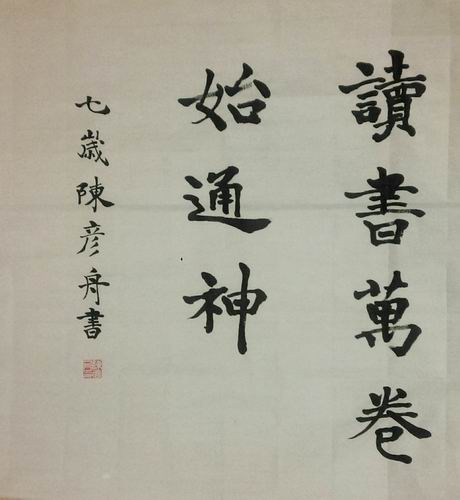 讀書萬卷
始通神
七歲陳彦舟書